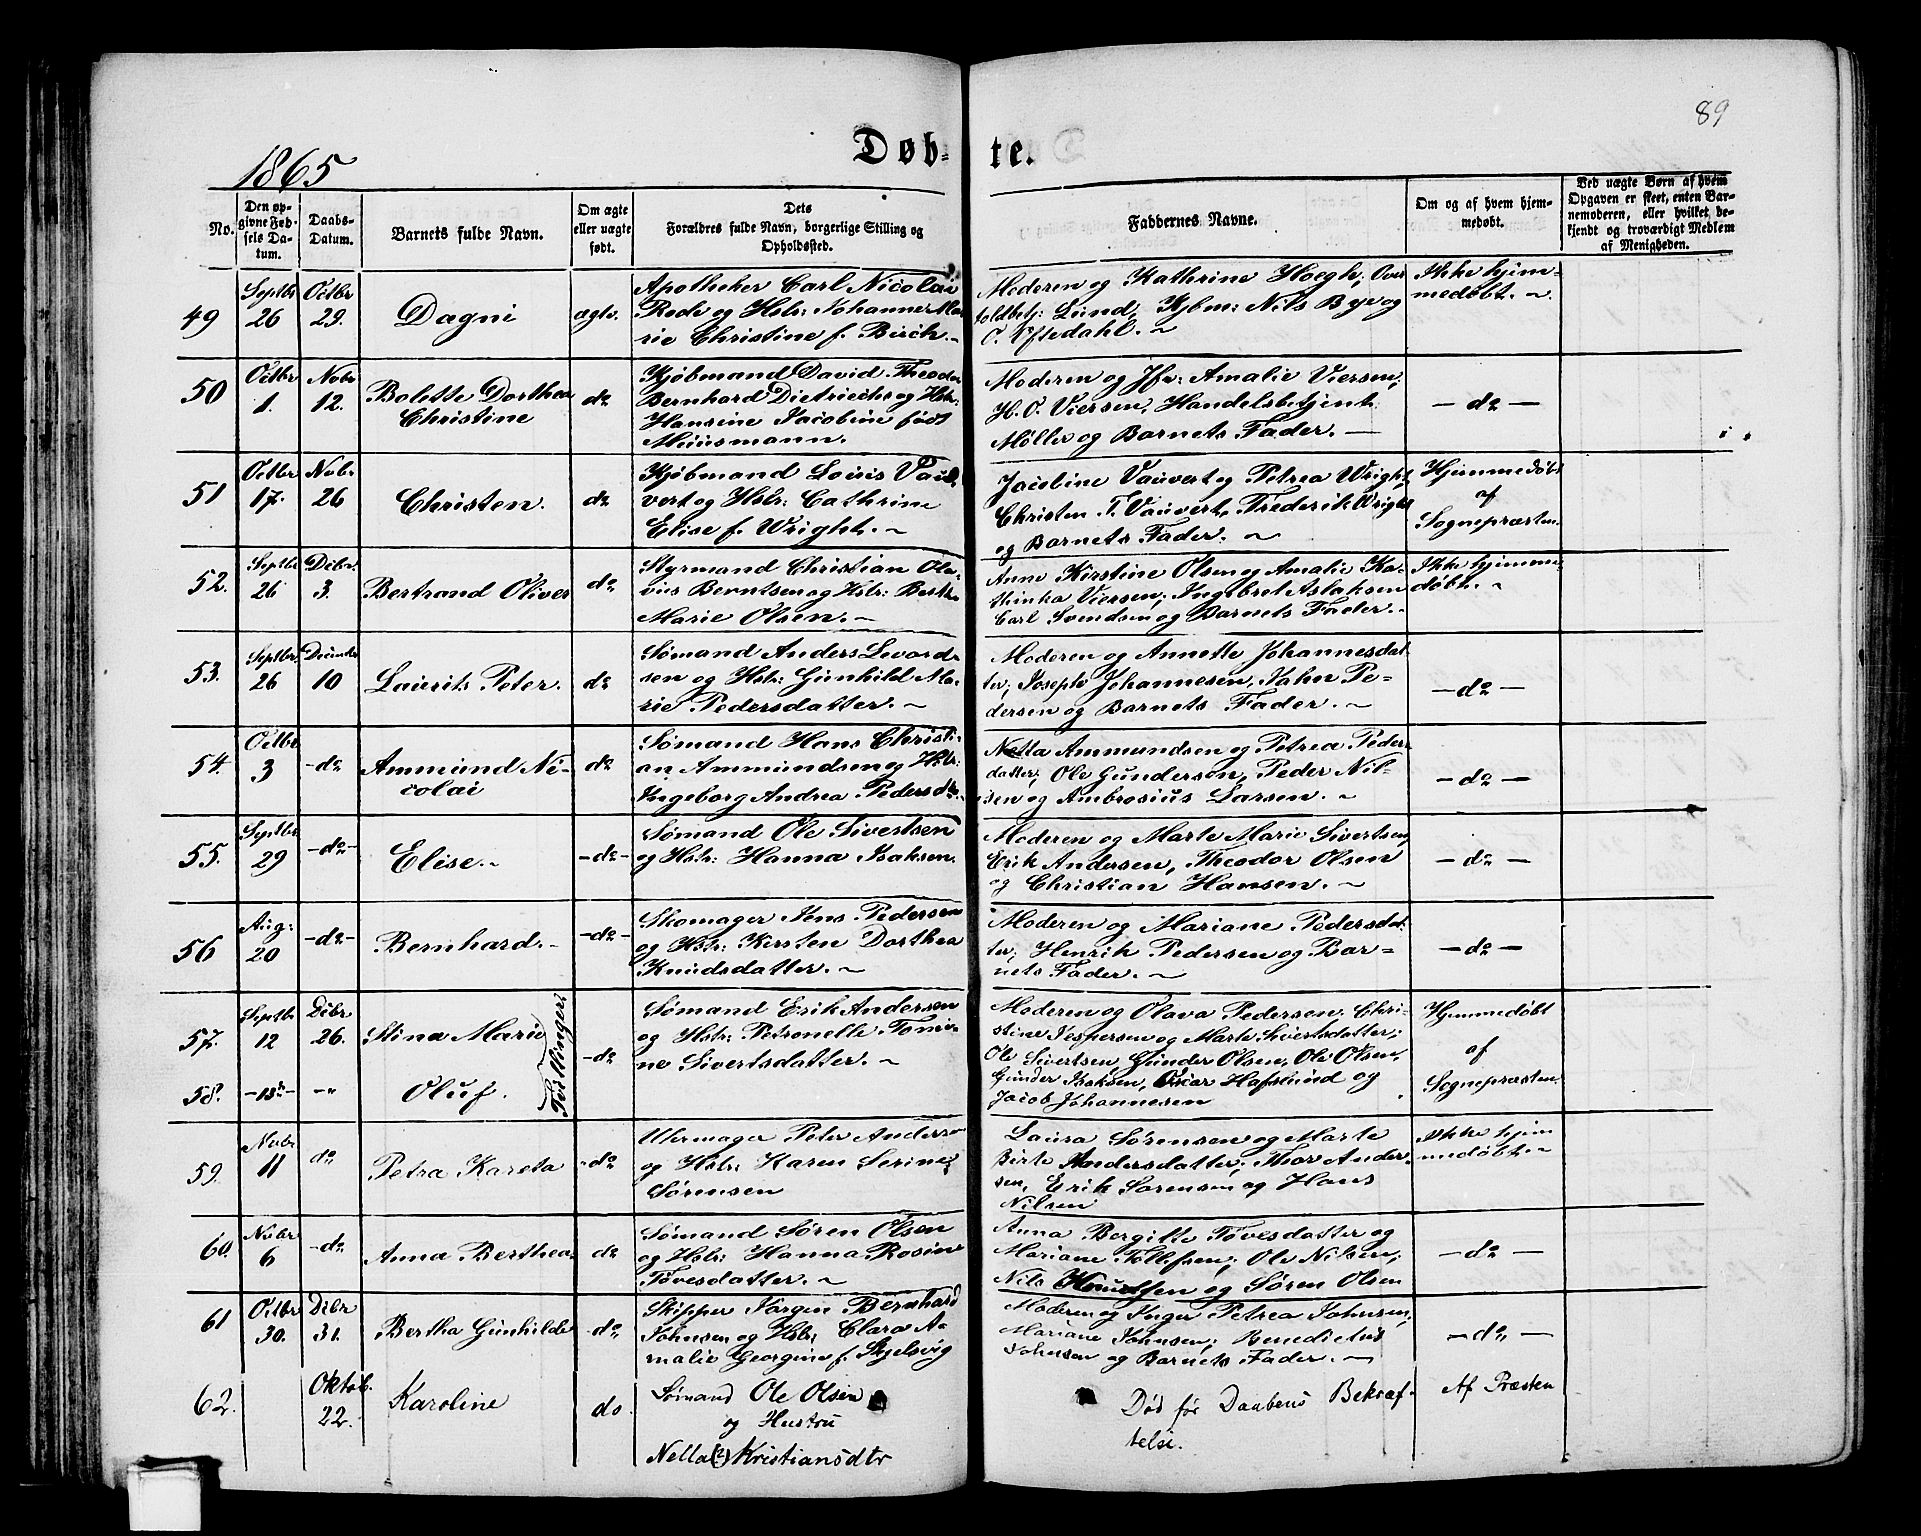 89
1865
Døb- te.
No.
Den op-
givne Fød-
sels Da-
tum.
Daabs-
Datum.
Barnets fulde Navn.
Om ægte
eller uægte
født.
Dets
Forældres fulde Navn, borgerlige Stilling og
Opholdssted.
Faddernes Navne.
Om og af hvem hjem-
medøbt.
Ved uægte Børn af hvem
Opgaven er skeet, enten Bar-
nemoderen, eller hvilket be-
kjendt og troværdigt Medlem
af Menigheden.
49
Septbr
26
Octbr
29.
Dagni
ægte.
Apotheker Carl Nicolai
Rode og Hstr: Johanne Ma-
rie Christine f. Birch.
Moderen og Kathrine Hoegh; Over
toldbetj: Lund, Kjbm: Nils Bye og
O. Uftedahl.
Ikke hjem-
medøbt.
50
Octbr
1.
Nobr
12.
Bolette Dorthea
Christine
do
Kjøbmand David Theodor
Bernhard Dietrichs og Hstr:
Hansine Jacobine født
Muusmann.
Moderen og Jfr: Amalie Viersen;
H. O. Viersen, Handelsbetjent
Møller og Barnets Fader.
-do-
51
Octbr
17.
Nobr
26
Christen.
do
Kjøbmand Louis Vau-
vert og Hstr: Cathrine
Elise f. Wright.
Jacobine Vauvert og Petrea Wright,
Christen F. Vauvert, Frederik Wright
og Barnets Fader.
Hjemmedøbt
af
Sognepræsten.
52.
Septbr
26
Debr.
3.
Bertrand Oliver
do
Styrmand Christian Ola-
vus Berntsen og Hstr: Berthe
Marie Olsen.
Anne Kirstine Olsen og Amalie Ka-
thinka Viersen; Ingebret Aslaksen
Carl Svendsen og Barnets Fader.
Ikke hjemme-
døbt.
53.
Septbr.
26
December
10
Laurits Peter.
do
Sømand Anders Sevard-
sen og Hstr: Gunhild Ma-
rie Pedersdatter.
Moderen og Annette Johannesdat
ter, Joseph Johannesen, Jahn Pe-
dersen og Barnets Fader.
-do-
54.
Octbr
3
-do
Ammund Ni-
colai
do
Sømand Hans Christi-
an Ammundsen og Hstr:
Ingeborg Andrea Pedersdtr.
Netta Ammundsen og Petrea Peders
datter; Ole Gundersen, Peder Nil-
sen og Ambrosius Larsen.
-do-
55.
Septbr
29
-do-
Elise.
-do-
Sømand Ole Sivertsen
og Hstr: Hanna Isaksen.
Moderen og Marte Marie Sivertsen,
Erik Andersen, Theodor Olsen
og Christian Hansen.
-do-
56
Aug:
20
-do-
Bernhard.
-do-
Skomager Jens Pedersen
og Hstr: Kirsten Dorthea
Knudsdatter.
Moderen og Mariane Pedersdat-
ter; Henrik Pedersen og Bar-
nets Fader.
-do-
57.
Septbr
12
Debr
26.
Stina Marie
Tvillinger
-do
Sømand Erik Andersen
og Hstr: Petronelle Tomi-
ne Sivertsdatter.
Moderen og Olava Pedersen; Chri-
stine Jespersen og Marte Sivertsdatter;
Ole Sivertsen, Gunder Olsen, Ole Olsen,
Gunder Isaksen, Oscar Hafslund og
Jacob Johannesen
Hjemmedøbt
af
Sognepræsten
58.
-13de-
-"-
Oluf.
59.
Nobr
11
do
Petra Kareta
-do
Uhrmager Peter Anders
og Hstr: Karen Serine
Sørensen
Laura Sørensen og Marte
Birte Andersdatter; Thor Ander-
sen, Erik Sørensen og Hans
Nilsen
Ikke hjem
medøbt.
60.
Nobr
6
-do
Anna Berthea.
do
Sømand Søren Olsen
og Hstr: Hanna Rosine
Tovesdatter.
Anna Bergitte Tovesdatter og
Mariane Tollefsen; Ole Nilsen;
Nils Knudsen og Søren Olsen
-do-
61
Octbr
30.
Debr
31.
Bertha Gunhilde
-do
Skipper Jørgen Bernhard
Johnsen og Hstr: Clara A-
malie Georgine f. Skjelsvig
Moderen og Inger Petrea Johnsen,
Mariane Johnsen; Benedictus
Johnsen og Barnets Fader.
-do-
62.
Oktob.
22.
Karoline
do.
Sømand Ole Olsen
og Hustru
Nella(?) Kristiansdtr
Død før Daabens Bekræf-
telse.
Af Præsten